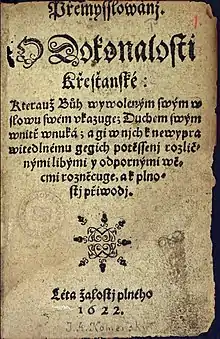 Přemysslowánj.
O Dokonalosti
Křesťanské:
Kterauž Bůh wywoleným swým w
slowu swém vkazuge; Duchem swým
wnitř wnuká; a gi w nich k newypra
witedlnému gegich potěssenj rozlič-
nými libými y odpornými wě-
cmi rozněcuge, a k plno-
stj přiwodj.
Léta žalostj plného
1622.
J. A. Komenský